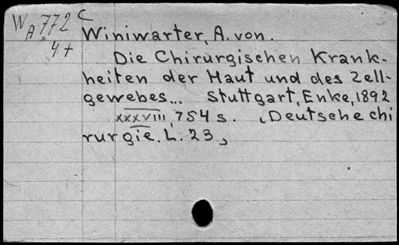 W A 772 C
4+
Winiwarter, A. von.
Die Chirurgischen Krank-
heiten der Haut und des Zell-
gewebes... Stuttgart, Enke, 1892
xxxviii, 754 s. (Deutsche chi
rurgie. L. 23)